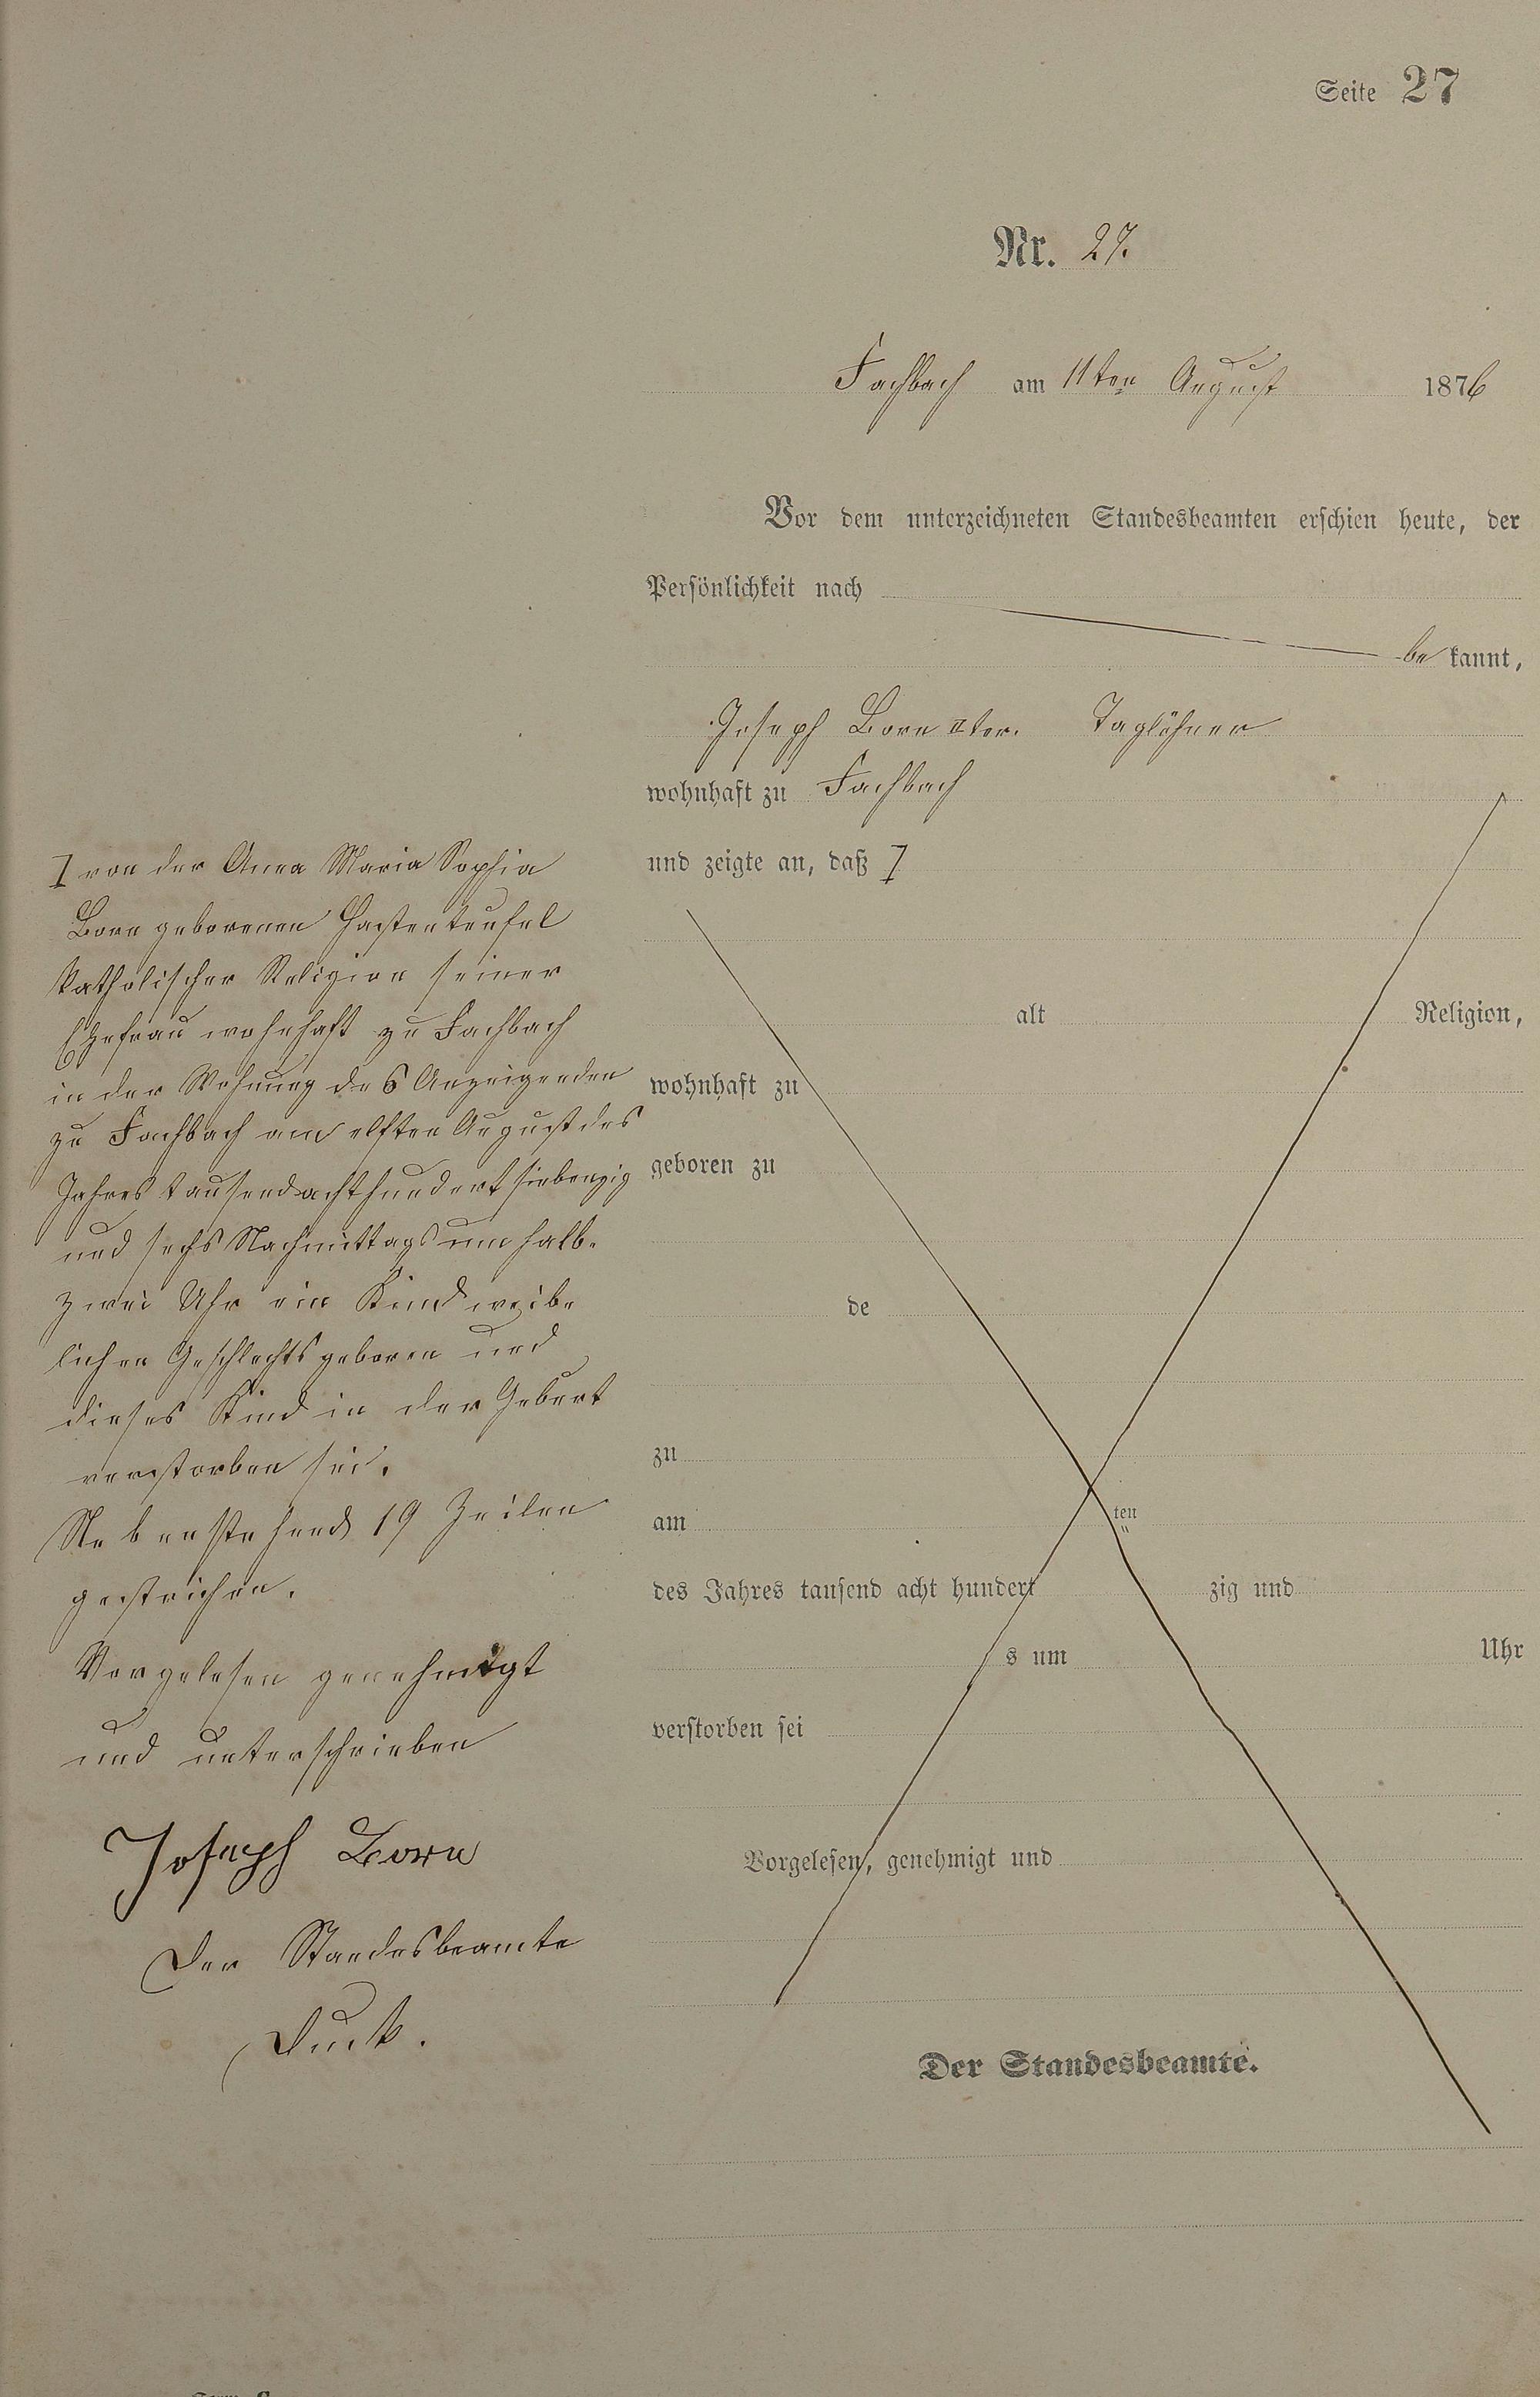 Seite 27
Nr. 27.
Fachbach am 11ten August 1876
Vor dem unterzeichneten Standesbeamten erschien heute, der
Persönlichkeit nach
be kannt,
Joseph Born IIter. Taglöhner
wohnhaft zu Fachbach
und zeigte an, daß ⁊
alt Religion,
wohnhaft zu
geboren zu
de
zu
am ten
des Jahres tausend acht hundert zig und
s um Uhr
verstorben sei
Vorgelesen, genehmigt und
Der Standesbeamte.
⁊ von der Anna Maria Sophia
Born geborenen Hastenteufel
katholischer Religion seiner
Ehefrau wohnhaft zu Fachbach
in der Wohnung des Anzeigenden
zu Fachbach am elften August des
Jahres tausendachthundert siebenzig
und sechs Nachmittags um halb-
zwei Uhr ein Kind weib-
lichen Geschlechts geboren und
dieses Kind in der Geburt
verstorben sei.
Nebenstehend 19 Zeilen
gestrichen.
Vorgelesen genehmigt
und unterschrieben
Joseph Born
Der Standesbeamte
Duck.